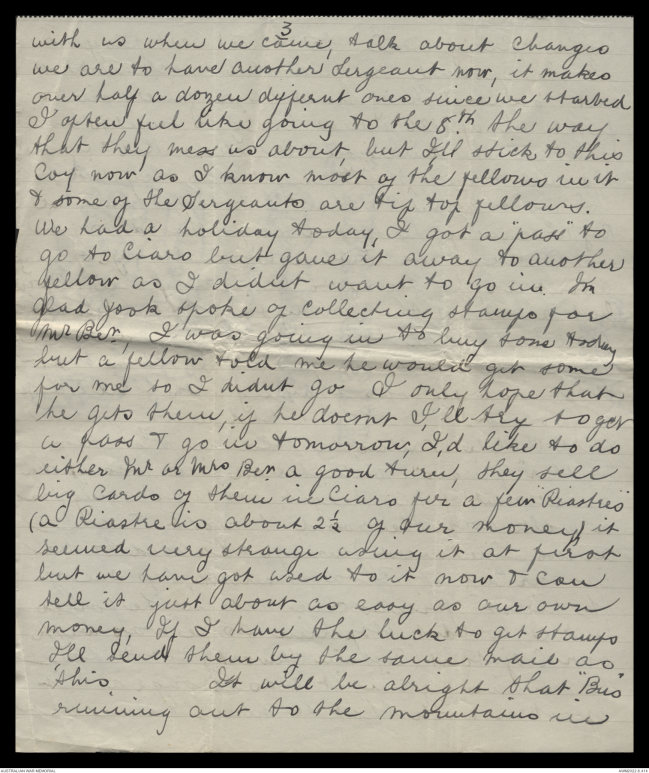 3
with us when we came, talk about changes
we are to have another Sergeant now, it makes
over half a dozen difernt ones since we started
I often feel like going to the 8th the way
that they mess us about, but I'll stick to this
Coy now as I know most of the fellows in it
& some of the Sergeants are tip top fellows.
We had a holiday today, I got a "pass" to
go to Ciaro but gave it away to another
fellow as I didnt want to go in. I'm
glad Jook spoke of collecting stamps for
Mr Ben, I was going in to buy some today
but a fellow told me he would get some
for me so I didnt go I only hope that
he gets them, if he doesnt I,ll try to get
a pass & go in tomorrow, I,d like to do
either Mr or Mrs Ben a good turn, they sell
big cards of them in Ciaro for a few "Piastres"
(a Piastre is about 2½ of our money) it
seemed very strange using it at first
but we have got used to it now & can
tell it just about as easy as our own
money, If I have the luck to get stamps
I'll send them by the same mail as
this It will be alright that "Bus"
running out to the mountains in
AUSTRALIAN WAR MEMORIAL